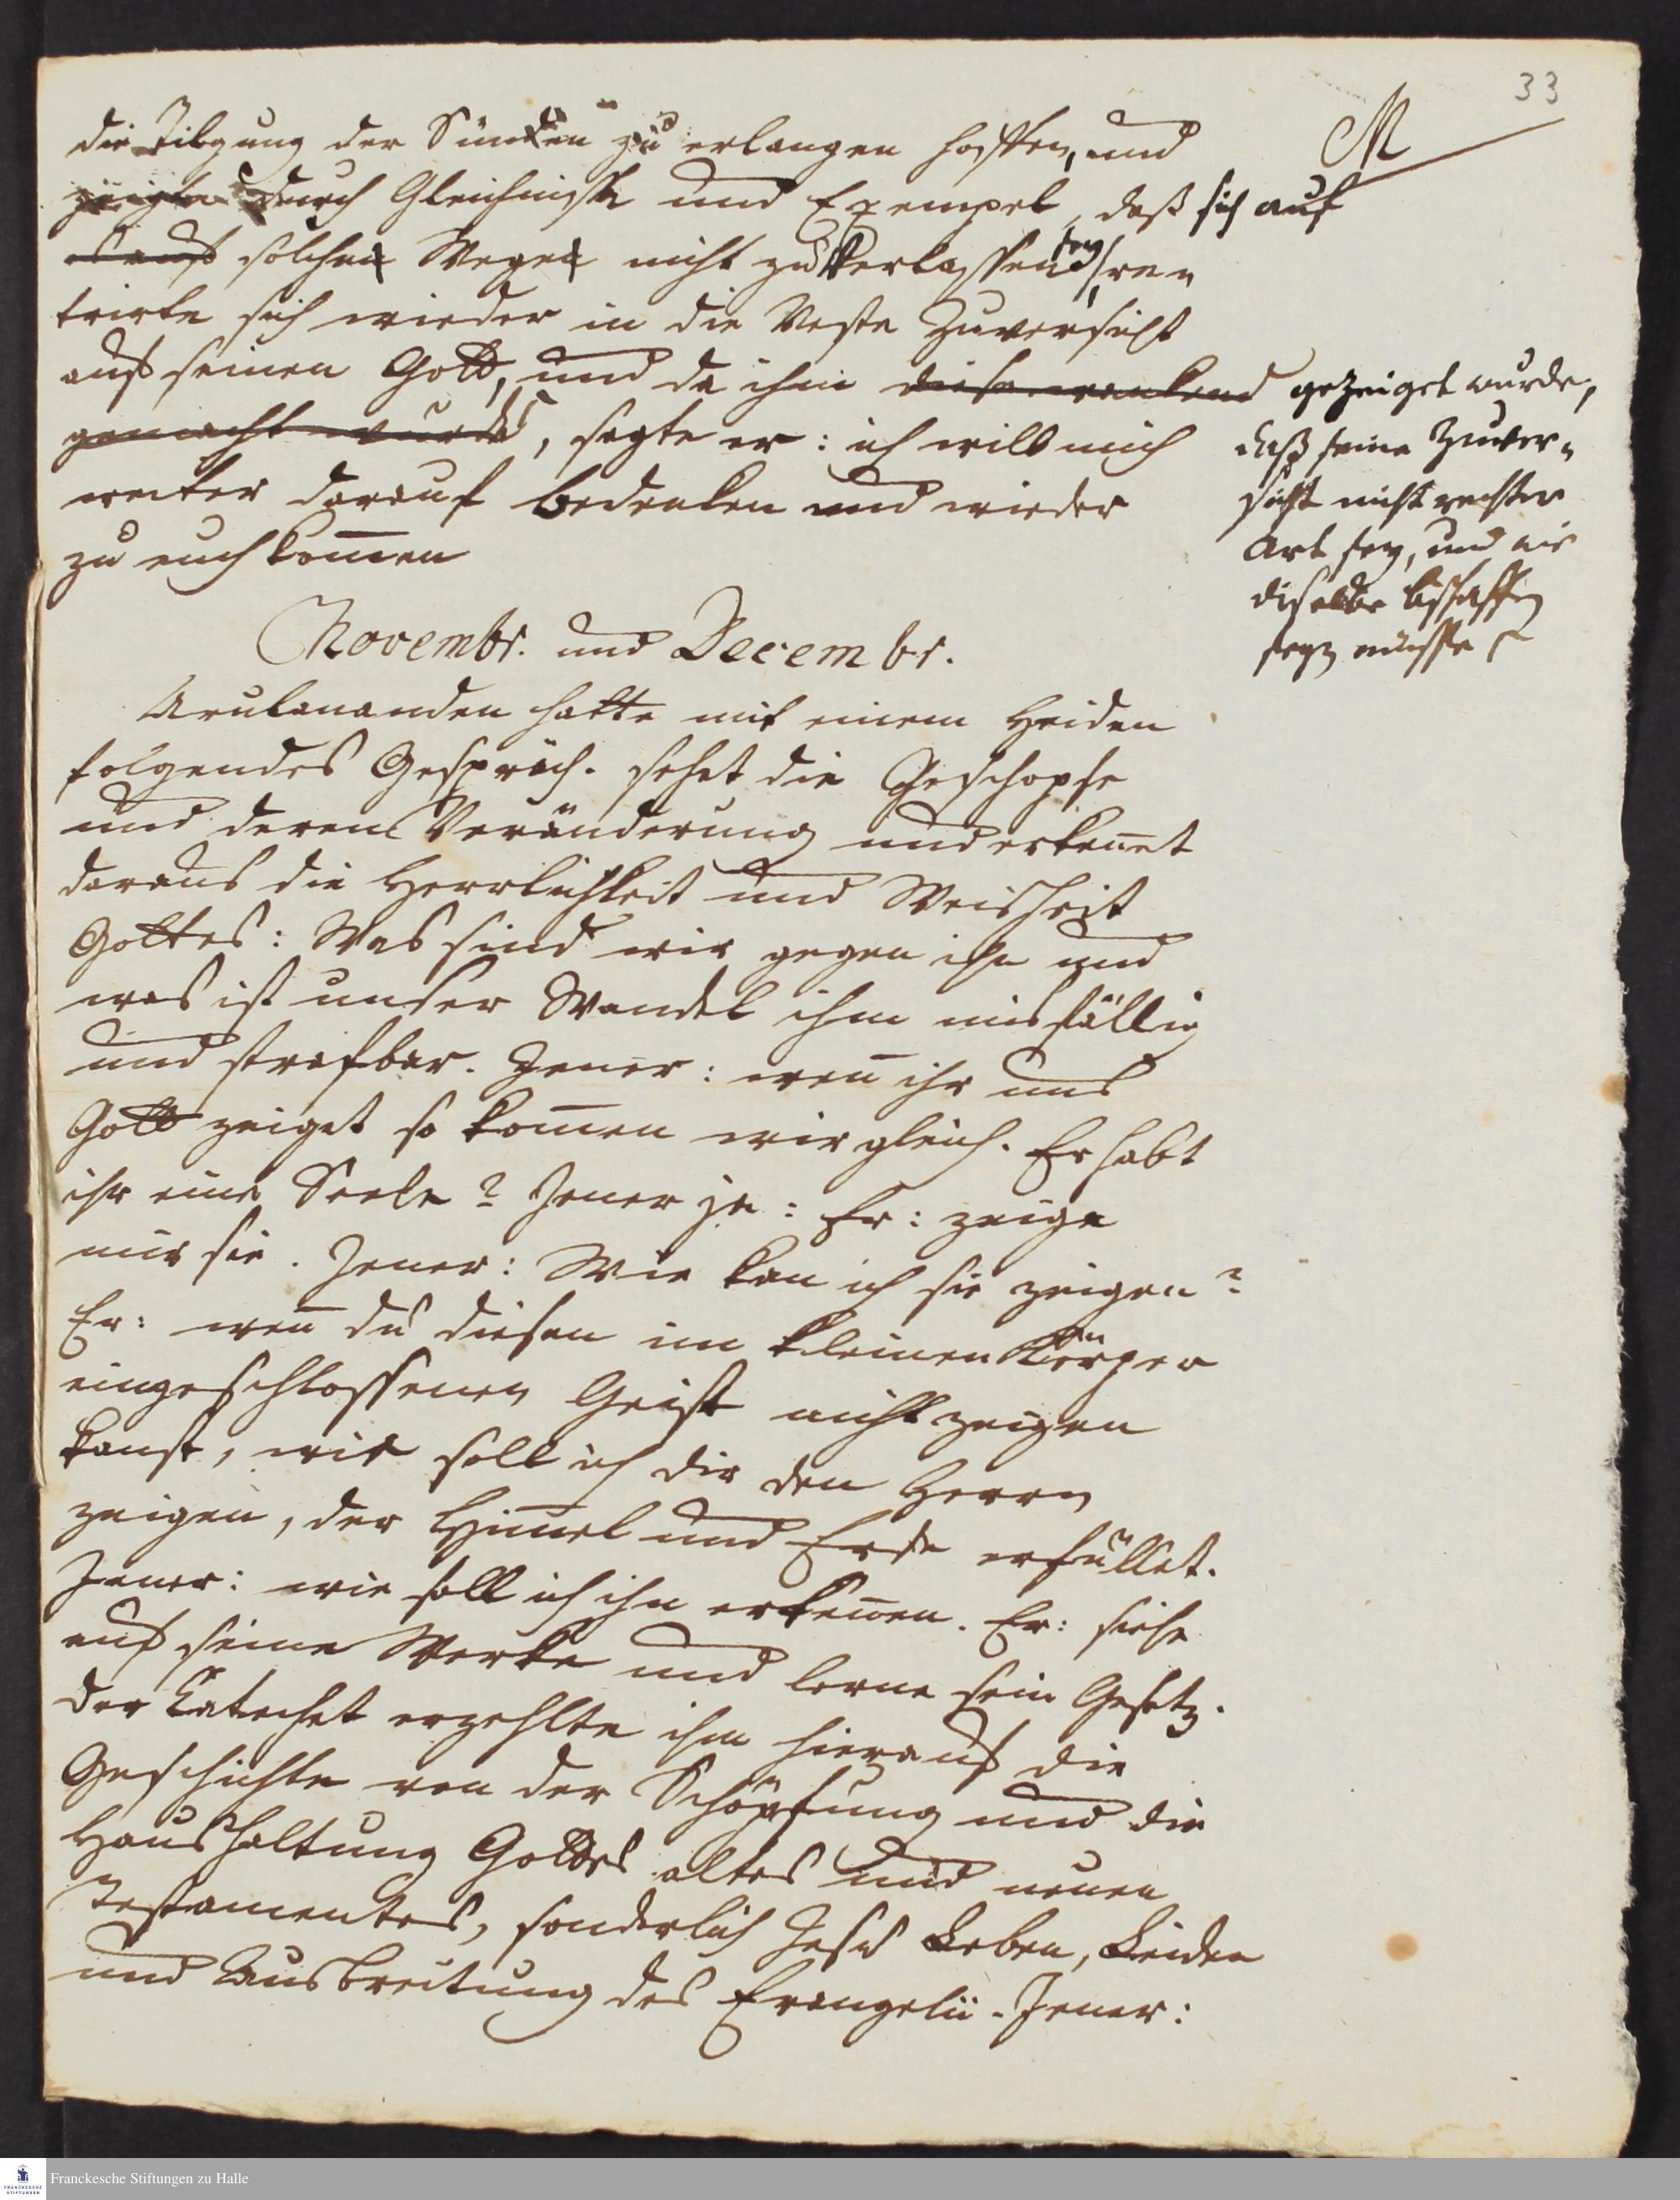 33
M
die Tilgung der Sünden zu erlangen hofften, und
zeigte durch Gleichnisse und Exempel, daß sich auf
solche Wege nicht zu verlassen sey,
sich wieder in die Veste Zuversicht
auf seinen Gott, und da ihm diese wankend gezeiget wurde,
gemacht wurde, sagte er: ich will mich
weiter darauf bedenken und wieder
zu euch kom̄en
daß seine Zuver-
sicht nicht rechter
Art sey, und wie
dieselbe beschaffen
seyn müsse
Novembr. und Decembr.
Arulananden hatte mit einem Heiden
folgendes Gespräch. sehet die Geschöpfe
und deren Veränderung und erken̄et
daraus die Herrlichkeit und Weisheit
Gottes: Was sind wir gegen ihn und
was ist unser Wandel ihm misfällig
und strafbar. Jener: wen̄ ihr uns
Gott zeiget so kom̄en wir gleich. Er habt
ihr eine Seele? Jener ja: Er: zeige
mir sie. Jener: Wie kan ich sie zeigen?
Er: wen̄ du diesen im kleinen Körper
eingeschlossenen Geist nicht zeigen
kanst, wie soll ich dir den Herrn
zeigen, der Him̄el und Erde erfüllet.
Jener: wie soll ich ihn erken̄en. Er: siehe
auf seine Werke und lerne sein Gesetz.
der Catechet erzehlte ihm hierauf die
Geschichte von der Schöpfung und die
Haushaltung Gottes altes und neuen
Testamentes, sonderlich Jesu Leben, Leiden
und Ausbreitung des Evangelii. Jener:
Franckesche Stiftungen zu Halle